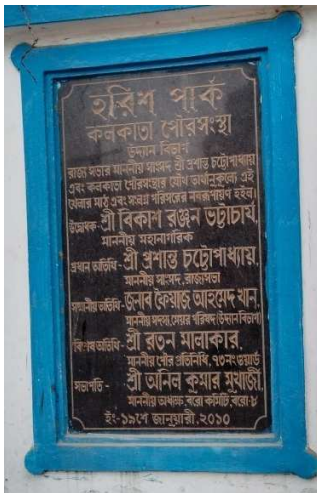 হরিশ পার্ক
কলকাতা পৌরসংস্থা
উদ্যান বিভাগ
রাজ্য সভার মাননীয় সাংসদ শ্রী প্রশান্ত চট্টোপাধ্যায়
এবং কলকাতা পৌরসংস্থার যৌথ অর্থানুকূল্যে এই
খেলার মাঠ এবং সংলগ্ন পরিসরের নবরূপায়ণ হইল।
উদ্বোধক - শ্রী বিকাশ রঞ্জন ভট্টাচার্য,
মাননীয় মহানাগরিক
প্রধান অতিথি - শ্রী প্রশান্ত চট্টোপাধ্যায়,
মাননীয় সাংসদ, রাজ্যসভা
সম্মানীয় অতিথি - জনাব ফৈয়াজ আহমেদ খান,
মাননীয় সদস্য, মেয়র পরিষদ (উদ্যান বিভাগ)
বিশেষ অতিথি - শ্রী রতন মালাকার,
মাননীয় পৌর প্রতিনিধি, ৭৩নং ওয়ার্ড
সভাপতি - শ্রী অনিল কুমার মুখার্জী,
মাননীয় অধ্যক্ষ, বরো কমিটি, বরো-৮
ইং-১৯শে জানুয়ারী, ২০১০